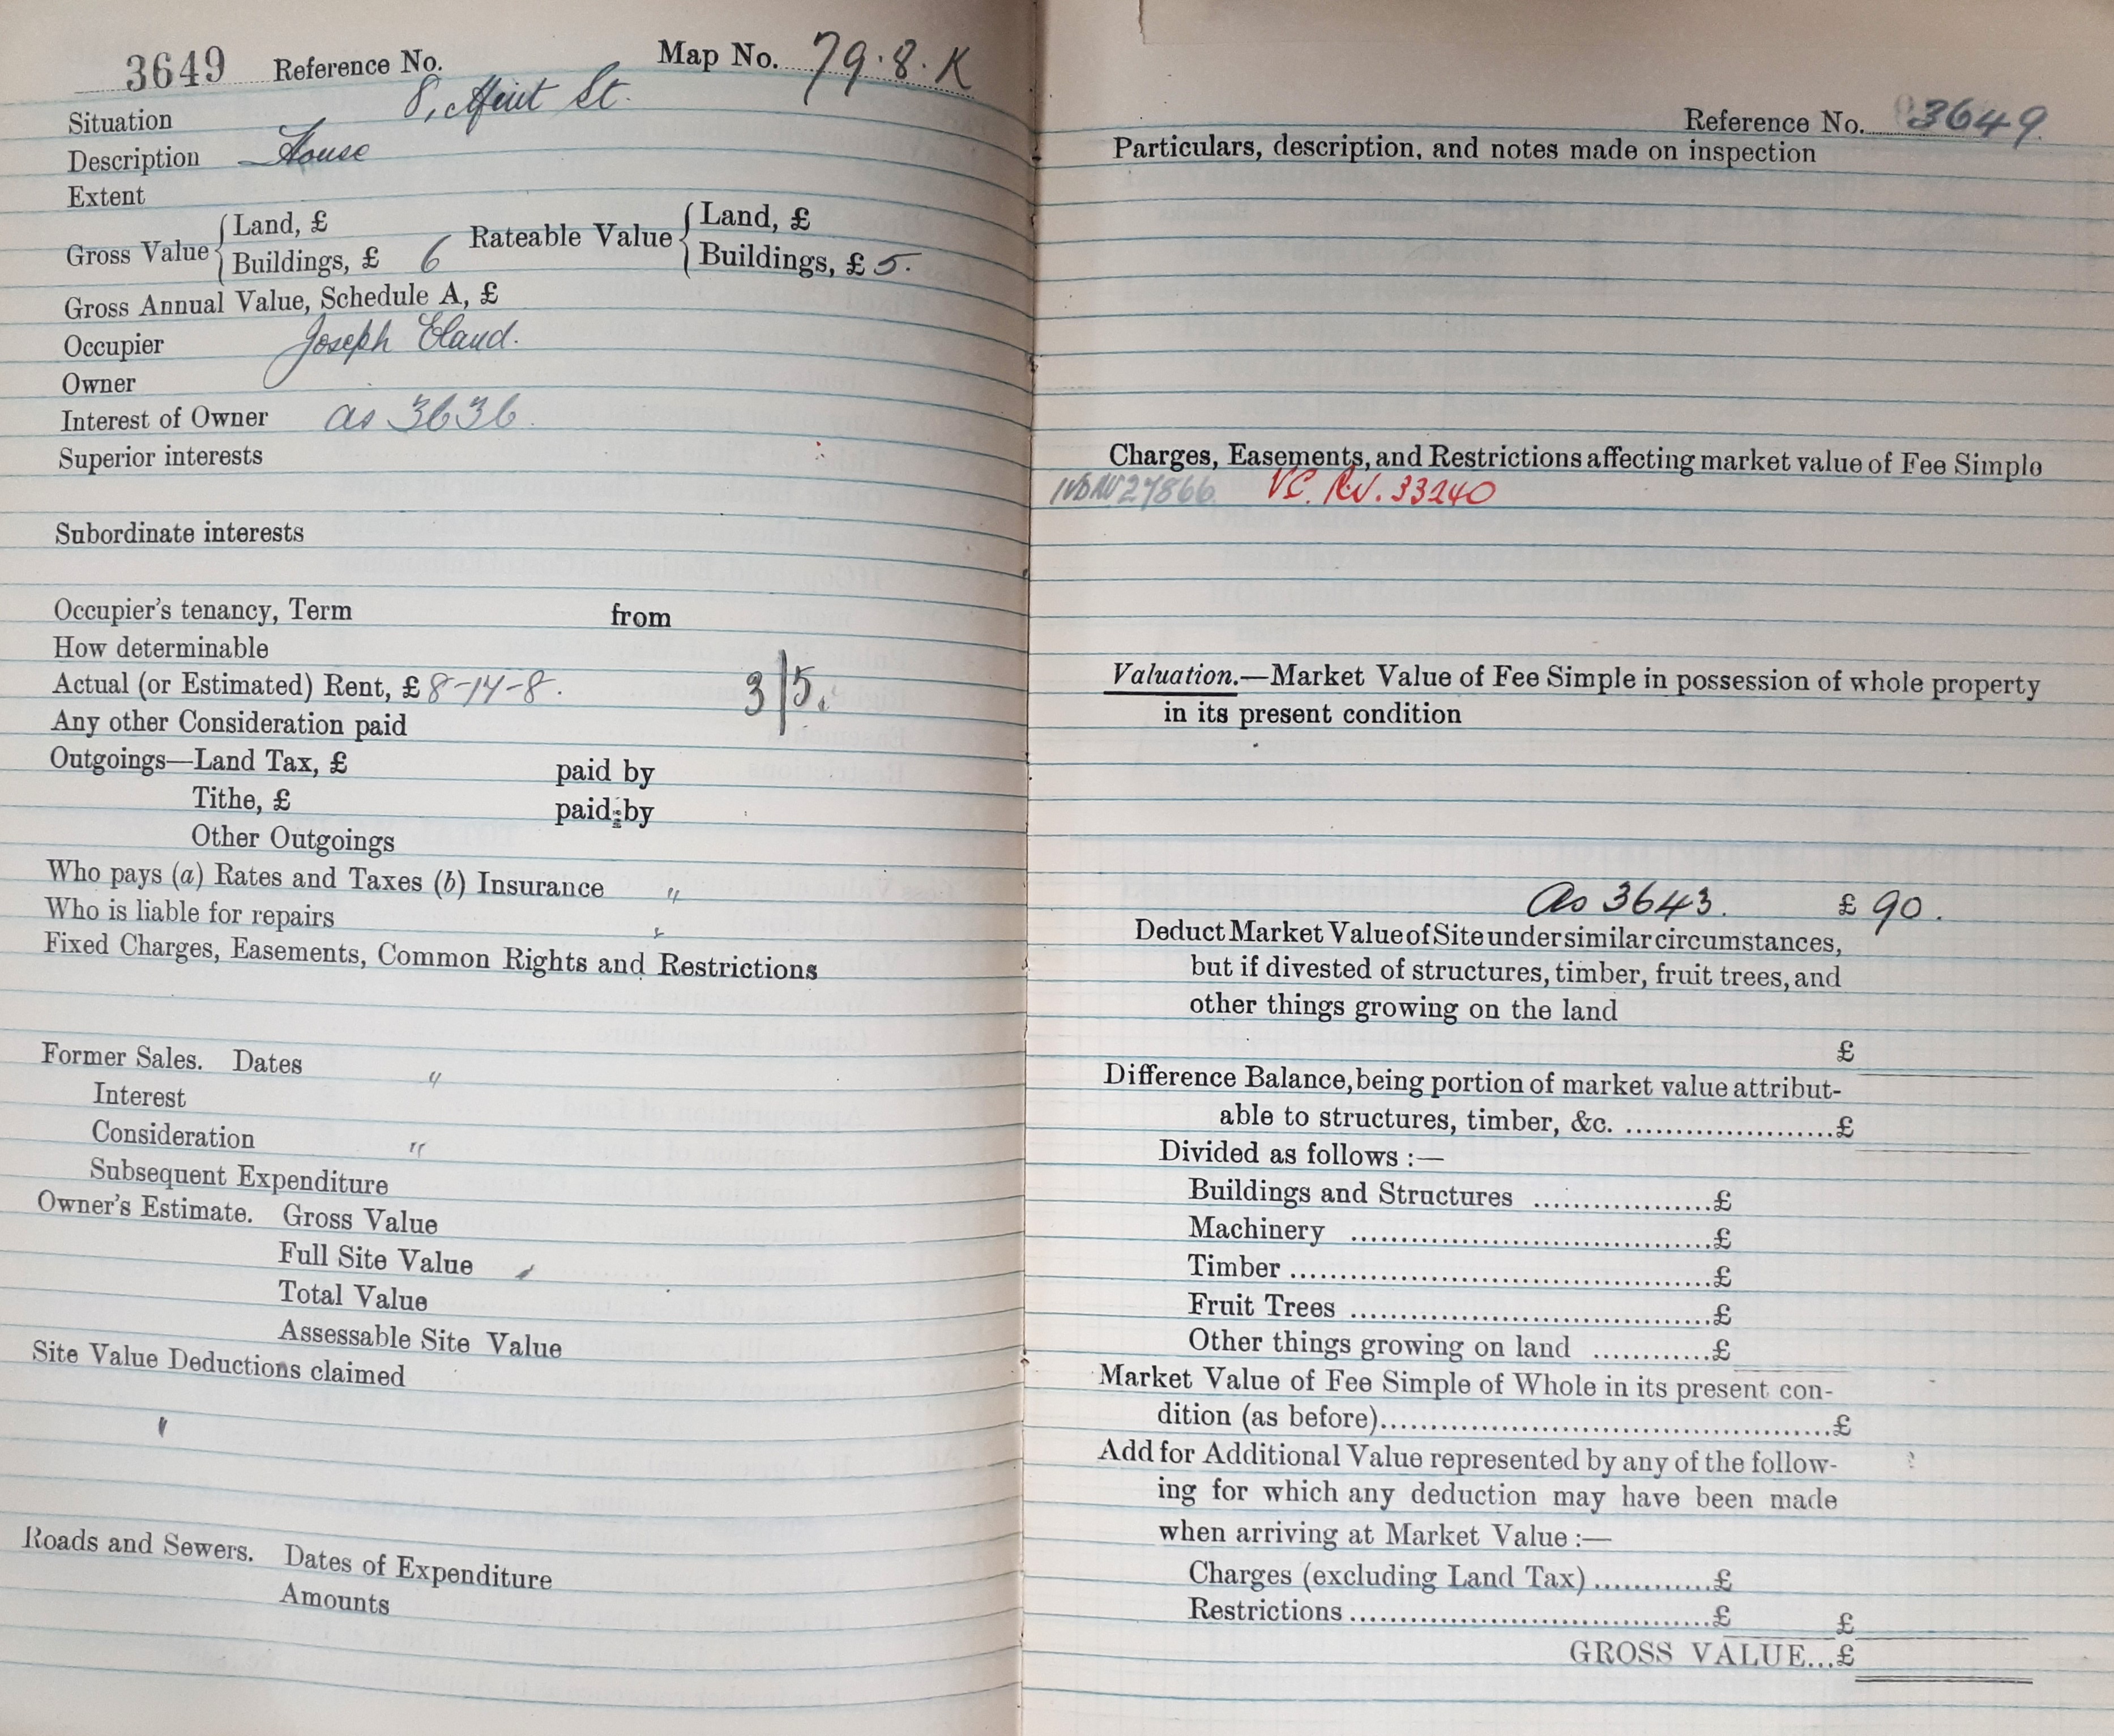 3649 Reference No. Map No. 79.8.K
Situation 8, St.
Description House
Extent
Gross Value { Land, £ Rateable Value { Land, £
Buildings, £ 6 Buildings, £ 5.
Gross Annual Value, Schedule A, £
Occupier Joseph Eland.
Owner
Interest of Owner as 3636.
Superior interests
Subordinate interests
Occupier's tenancy, Term from
How determinable
Actual (or Estimated) Rent, £ 8-14-8. 3/5.
Any other Consideration paid
Outgoings—Land Tax, £ paid by
Tithe, £ paid by
Other Outgoings
Who pays (a) Rates and Taxes (b) Insurance "
Who is liable for repairs "
Fixed Charges, Easements, Common Rights and Restrictions
Former Sales. Dates "
Interest
Consideration "
Subsequent Expenditure
Owner's Estimate. Gross Value
Full Site Value
Total Value
Assessable Site Value
Site Value Deductions claimed
Roads and Sewers. Dates of Expenditure
Amounts
Reference No. 3649.
Particulars, description, and notes made on inspection
Charges, Easements, and Restrictions affecting market value of Fee Simple
27866 33240
Valuation.—Market Value of Fee Simple in possession of whole property
in its present condition
As 3643. £ 90.
Deduct Market Value of Site under similar circumstances,
but if divested of structures, timber, fruit trees, and
other things growing on the land
£
Difference Balance, being portion of market value attribut-
able to structures, timber, &c. ....................£
Divided as follows :—
Buildings and Structures ..................£
Machinery ....................................£
Timber ..........................................£
Fruit Trees ....................................£
Other things growing on land ............£
Market Value of Fee Simple of Whole in its present con-
dition (as before)............................................£
Add for Additional Value represented by any of the follow-
ing for which any deduction may have been made
when arriving at Market Value :—
Charges (excluding Land Tax)............£
Restrictions ....................................£ £
GROSS VALUE...£